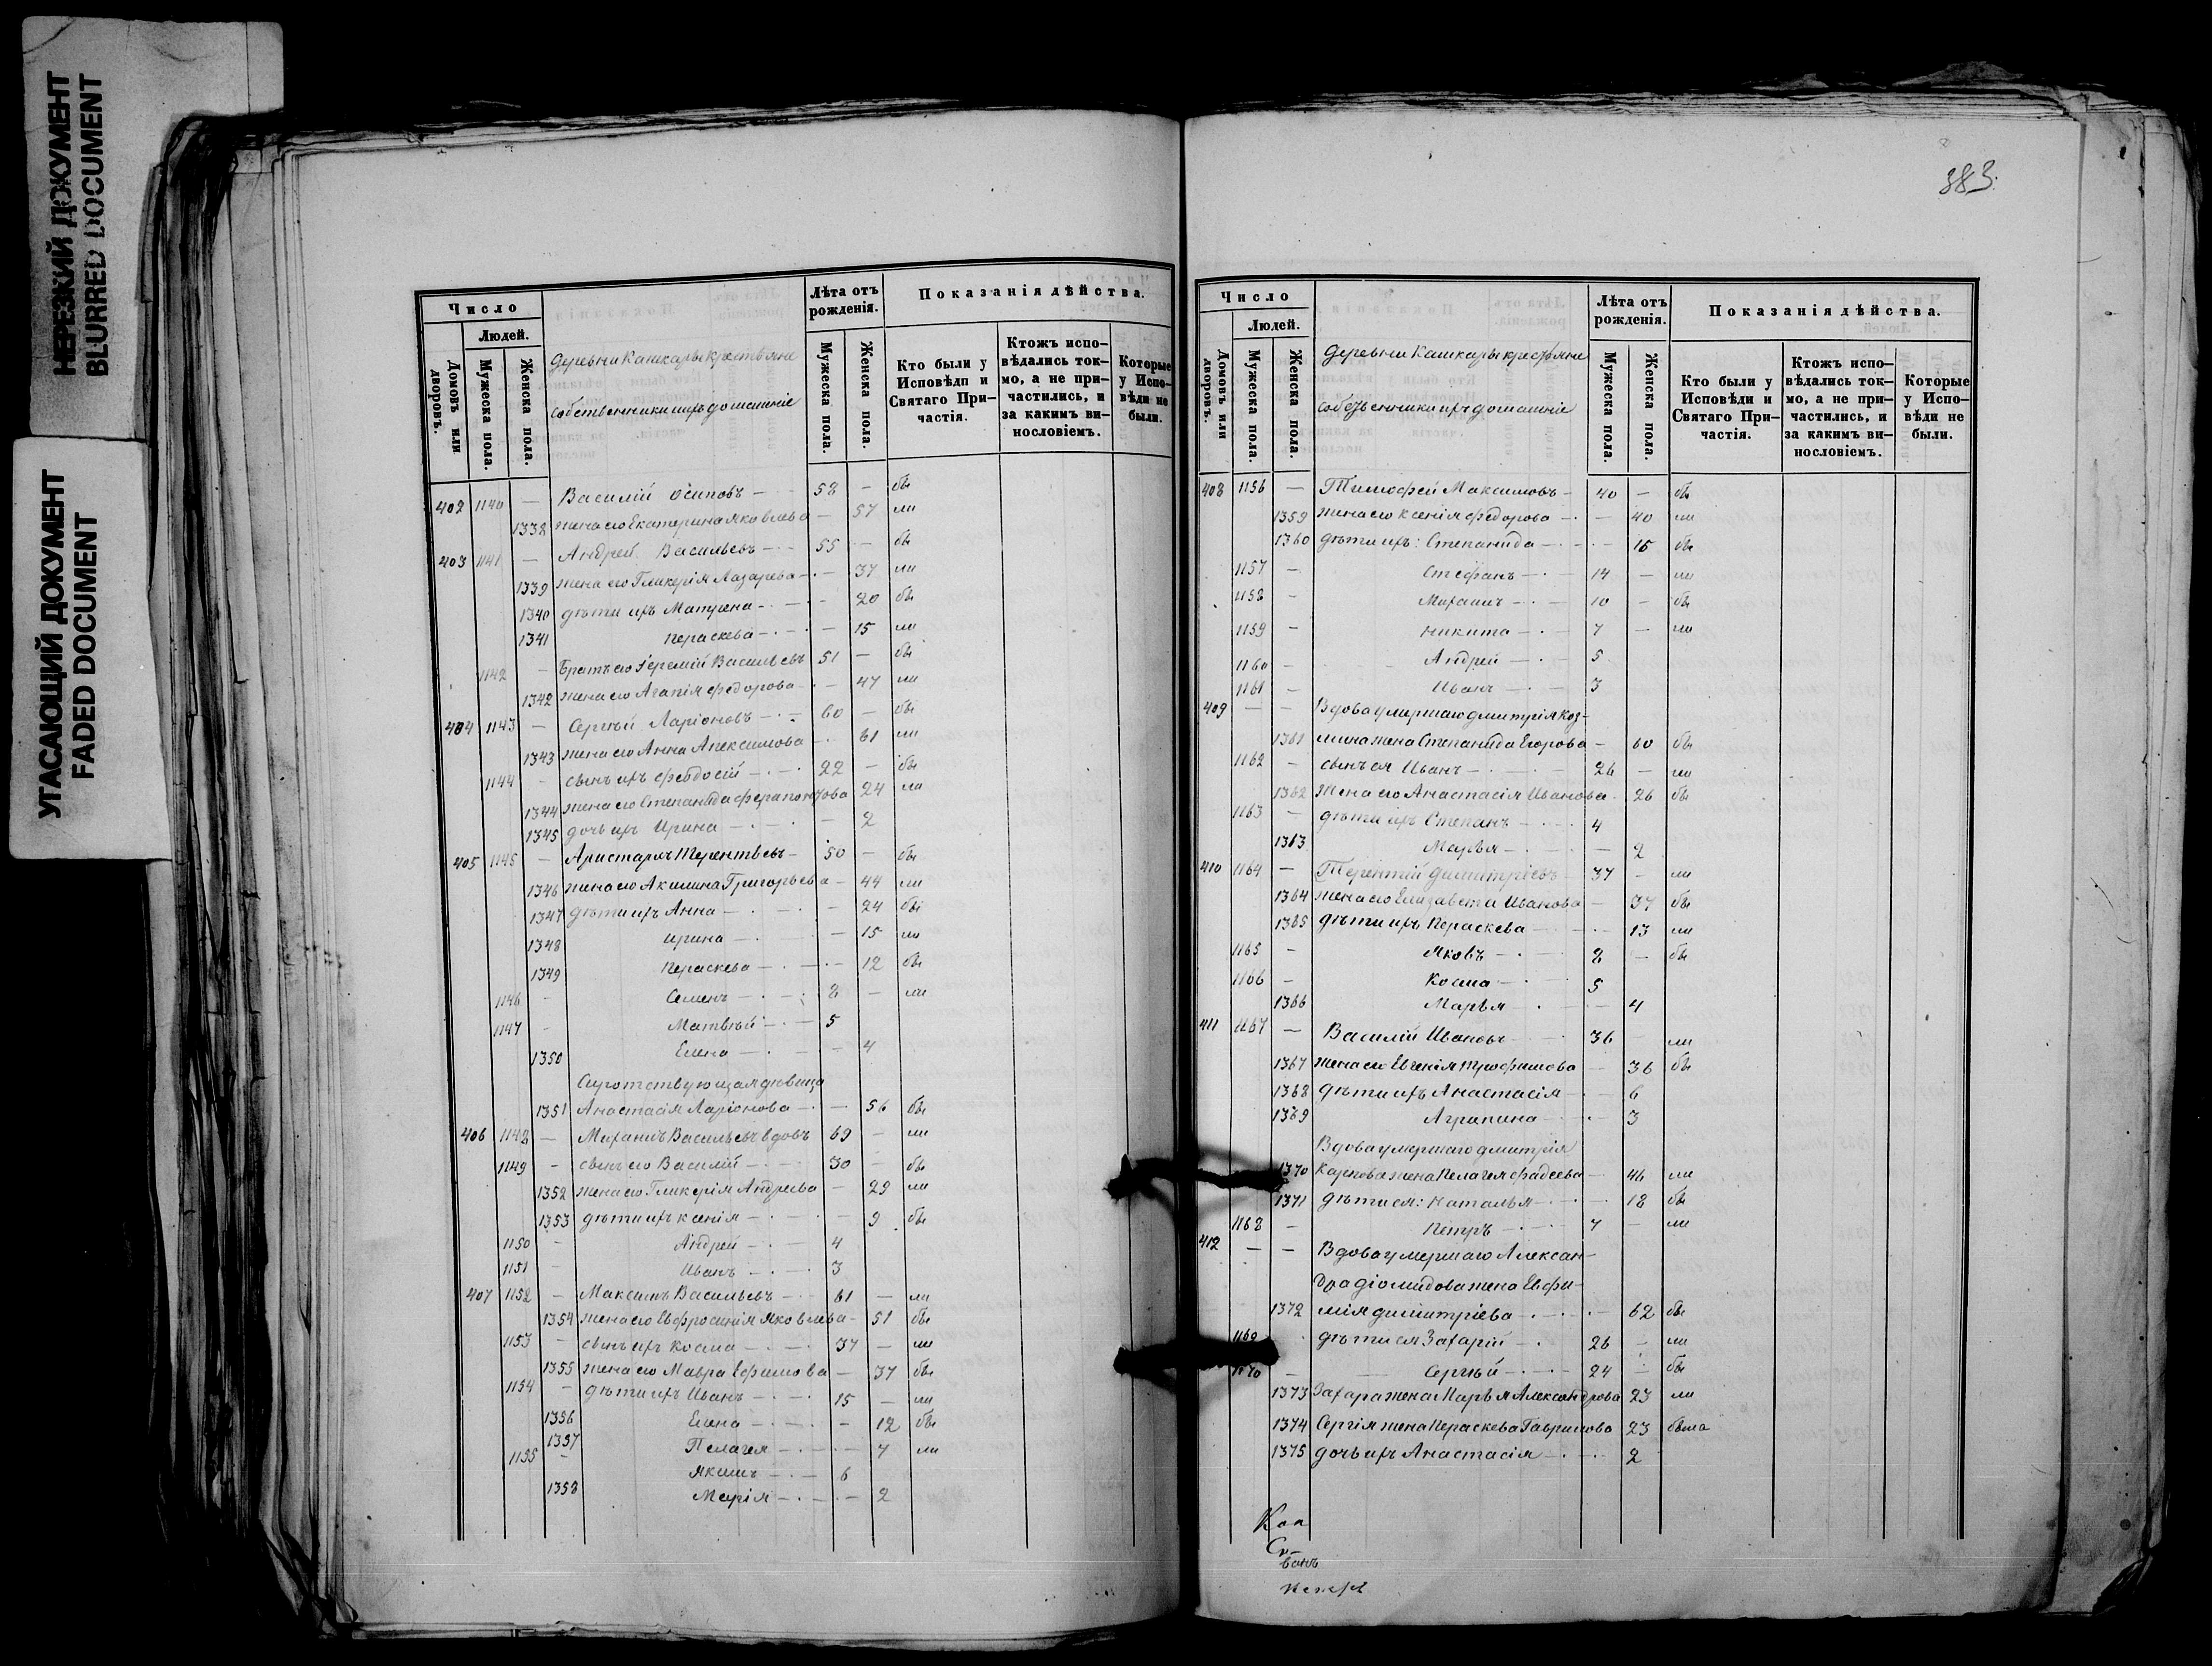 НЕРЕЗКИЙ ДОКУМЕНТ
BLURRED DOCUMENT
УГАСАЮЩИЙ ДОКУМЕНТ
FADED DOCUMENT
Число
Людей.
Домовъ или дворовъ.
Мужеска пола.
Женска пола.
деревни Кашкары крестьяне
собственники ихъ домашніе
Лѣта отъ рожденія.
Мужеска пола.
Женска пола.
Показанія дѣйства.
Кто были у Исповѣди и Святаго Причастія.
Ктожъ исповѣдались токмо, а не причастились, и за какимъ винословіемъ.
Которые у Исповѣди не были.
402 1140 — Василій Осиповъ — 58 — бы
1338 жена его Екатерина Яковлева — 57 ли
403 1141 — Андрей Васильевъ — 55 — бы
1339 жена его Гликерія Лазарева — 37 ли
1340 дѣти ихъ Матрена — 20 бы
1341 Параскева — 15 ли
1142 — Братъ его Іеремій Васильевъ 51 — бы
1342 жена его Агапія Федорова — 47 ли
404 1143 — Сергѣй Ларіоновъ — 60 — бы
1343 жена его Анна Алексимова — 61 ли
1144 — сынъ ихъ Феодосій — 22 — бы
1344 жена его Степанида Ферапонтова 24 ли
1345 дочь ихъ Ирина — 2
405 1145 — Аристархъ Терентьевъ — 50 — бы
1346 жена его Акилина Григорьева — 44 ли
1347 дѣти ихъ Анна — 24 бы
1348 Ирина — 15 ли
1349 Параскева — 12 бы
1146 — Семенъ — 8 — ли
1147 — Матвѣй — 5
1350 Елена — 4
Сиротствующая дѣвица
1351 Анастасія Ларіонова — 56 бы
406 1148 — Михаилъ Васильевъ вдовъ 69 — ли
1149 — сынъ его Василій — 30 — бы
1352 жена его Гликерія Андреева — 29 ли
1353 дѣти ихъ Ксенія — 9 бы
1150 — Андрей — 4
1151 — Иванъ — 3
407 1152 — Максимъ Васильевъ — 61 — ли
1354 жена его Евфросинія Яковлева — 51 бы
1153 — сынъ ихъ Косма — 37 — ли
1355 жена его Мавра Ефимова — 37 бы
1154 — дѣти ихъ Иванъ — 15 — ли
1356 Елена — 12 бы
1357 Пелагея — 7 ли
1155 — Якимъ — 6
1358 Марія — 2
383.
Число
Людей.
Домовъ или дворовъ.
Мужеска пола.
Женска пола.
деревни Кашкары крестьяне
собственники ихъ домашніе
Лѣта отъ рожденія.
Мужеска пола.
Женска пола.
Показанія дѣйства.
Кто были у Исповѣди и Святаго Причастія.
Ктожъ исповѣдались токмо, а не причастились, и за какимъ винословіемъ.
Которые у Исповѣди не были.
408 1156 — Тимофей Максимовъ — 40 — бы
1359 жена его Ксенія Федорова — 40 ли
1360 дѣти ихъ: Степанида — 15 бы
1157 — Стефанъ — 14 — ли
1158 — Михаилъ — 10 — бы
1159 — Никита — 7 — ли
1160 — Андрей — 5
1161 — Иванъ — 3
409 — — Вдова умершаго Дмитрія Коз-
1361 мина жена Степанида Егорова — 60 бы
1162 — сынъ ея Иванъ — 26 — ли
1362 Жена его Анастасія Иванова 26 бы
1163 — дѣти ихъ Степанъ — 4
1363 Марья — 2
410 1164 — Терентій Димитріевъ 37 — ли
1364 жена его Елизавета Иванова — 37 бы
1365 дѣти ихъ Параскева — 13 ли
1165 — Яковъ — 8 — бы
1166 — Косма — 5
1366 Марья — 4
411 1167 — Василій Ивановъ 36 ли
1367 жена его Евгенія Трофимова — 36 бы
1368 дѣти ихъ Анастасія — 6
1369 Агрипина — 3
Вдова умершаго Дмитрія
1370 Карпова жена Пелагея Фадеева — 46 ли
1371 дѣти ея: Наталья — 18 бы
1168 — Петръ — 7 — ли
412 — — Вдова умершаго Алексан-
дра Діомидова жена Евфи-
1372 мія Димитріева — 62 бы
1169 дѣти ея Захарій — 26 — ли
1170 — Сергѣй — 24 — бы
1373 Захара жена Марья Александрова 23 ли
1374 Сергія жена Параскева Гаврилова 23 была
1375 дочь ихъ Анастасія — 2